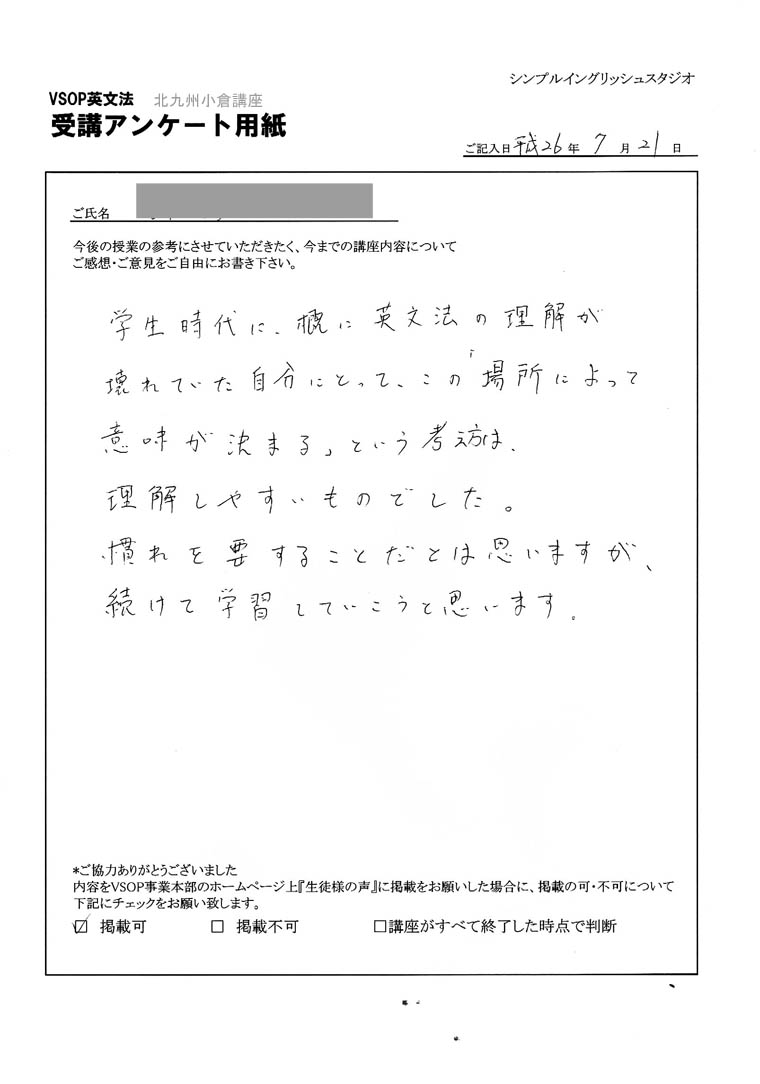 シンプルイングリッシュスタジオ
VSOP英文法 北九州小倉講座
受講アンケート用紙
ご記入日 平成26年 7月 21日
ご氏名
今後の授業の参考にさせていただきたく、今までの講座内容について
ご感想・ご意見をご自由にお書き下さい。
学生時代に、概に英文法の理解が
壊れていた自分にとって、この「場所によって
意味が決まる」という考え方は、
理解しやすいものでした。
慣れを要することだとは思いますが、
続けて学習していこうと思います。
*ご協力ありがとうございました
内容をVSOP事業本部のホームページ上『生徒様の声』に掲載をお願いした場合に、掲載の可・不可について
下記にチェックをお願い致します。
☑ 掲載可 □ 掲載不可 □講座がすべて終了した時点で判断